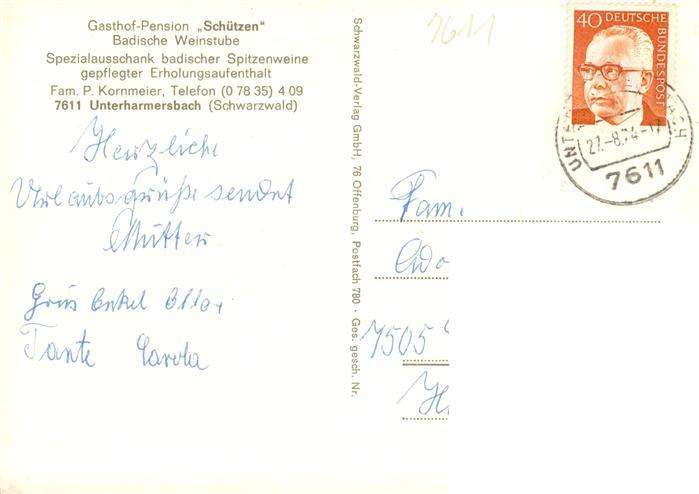 Gasthof-Pension „Schützen"
Badische Weinstube
Spezialausschank badischer Spitzenweine
gepflegter Erholungsaufenthalt
Fam. P. Kornmeier, Telefon (0 78 35) 4 09
7611 Unterharmersbach (Schwarzwald)
Herzliche
Urlaubsgrüße sendet
Mutter
Grüs Onkel Otto +
Tante Carola
Schwarzwald-Verlag GmbH, 76 Offenburg, Postfach 780 · Ges. gesch. Nr.
7611
40 DEUTSCHE
BUNDESPOST
27.-8.74-17
7611
Fam.
7505